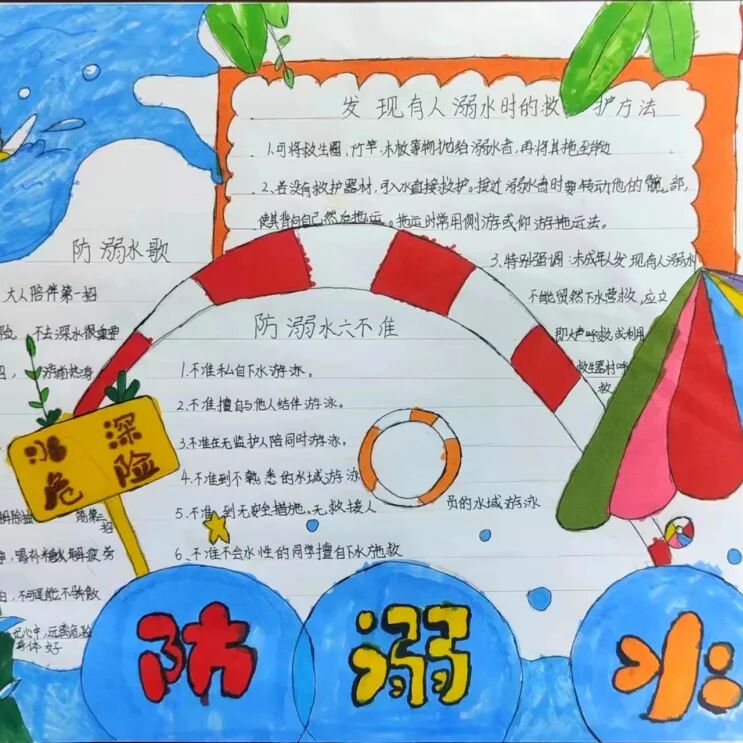 发现有人溺水时的救 护方法
1.可将救生圈、竹竿、木板等物抛给溺水者,再将其拖至岸边
2、若没有救护器材,可入水直接救护。接近溺水者时要转动他的髋部,
使其背向自己然后拖运。拖运时常用侧游或仰游拖运法。
3、特别强调:未成年人发现有人溺水
不能贸然下水营救,应立
即大声呼救,或利用
救生器材呼
救
防溺水歌
大人陪伴第一招
险, 不去深水很重要
防溺水六不准
1.不准私自下水游泳。
2、不准擅自与他人结伴游泳。
3、不准在无监护人陪同时游泳。
4、不准到不熟悉的水域游泳
5、不准到无安全措施、无救援人 员的水域游泳
6、不准不会水性的同学擅自下水施救
水深
危险
第三
招
心中,远离危险
身体好
防溺水